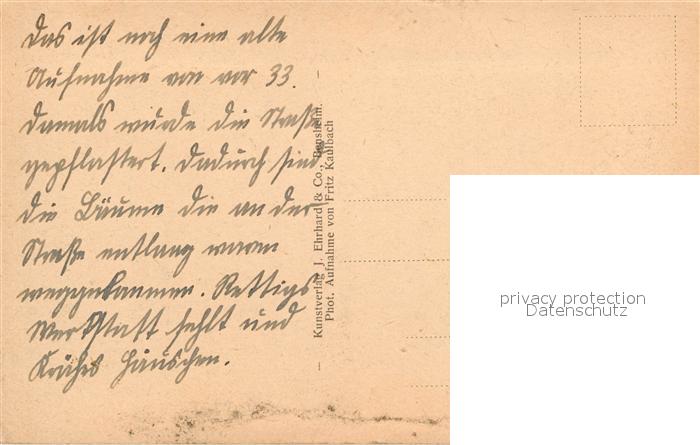 Das ist noch eine alte
Aufnahme von vor 33.
Damals wurde die Straße
gepflastert. Dadurch sind
die Bäume die an der
Straße entlang waren
weggekommen. Rettigs
Werkstatt fehlt und
Krähes Häuschen.
Kunstverlag J. Ehrhard & Co., Bensheim.
Phot. Aufnahme von Fritz Kaulbach
privacy protection
Datenschutz